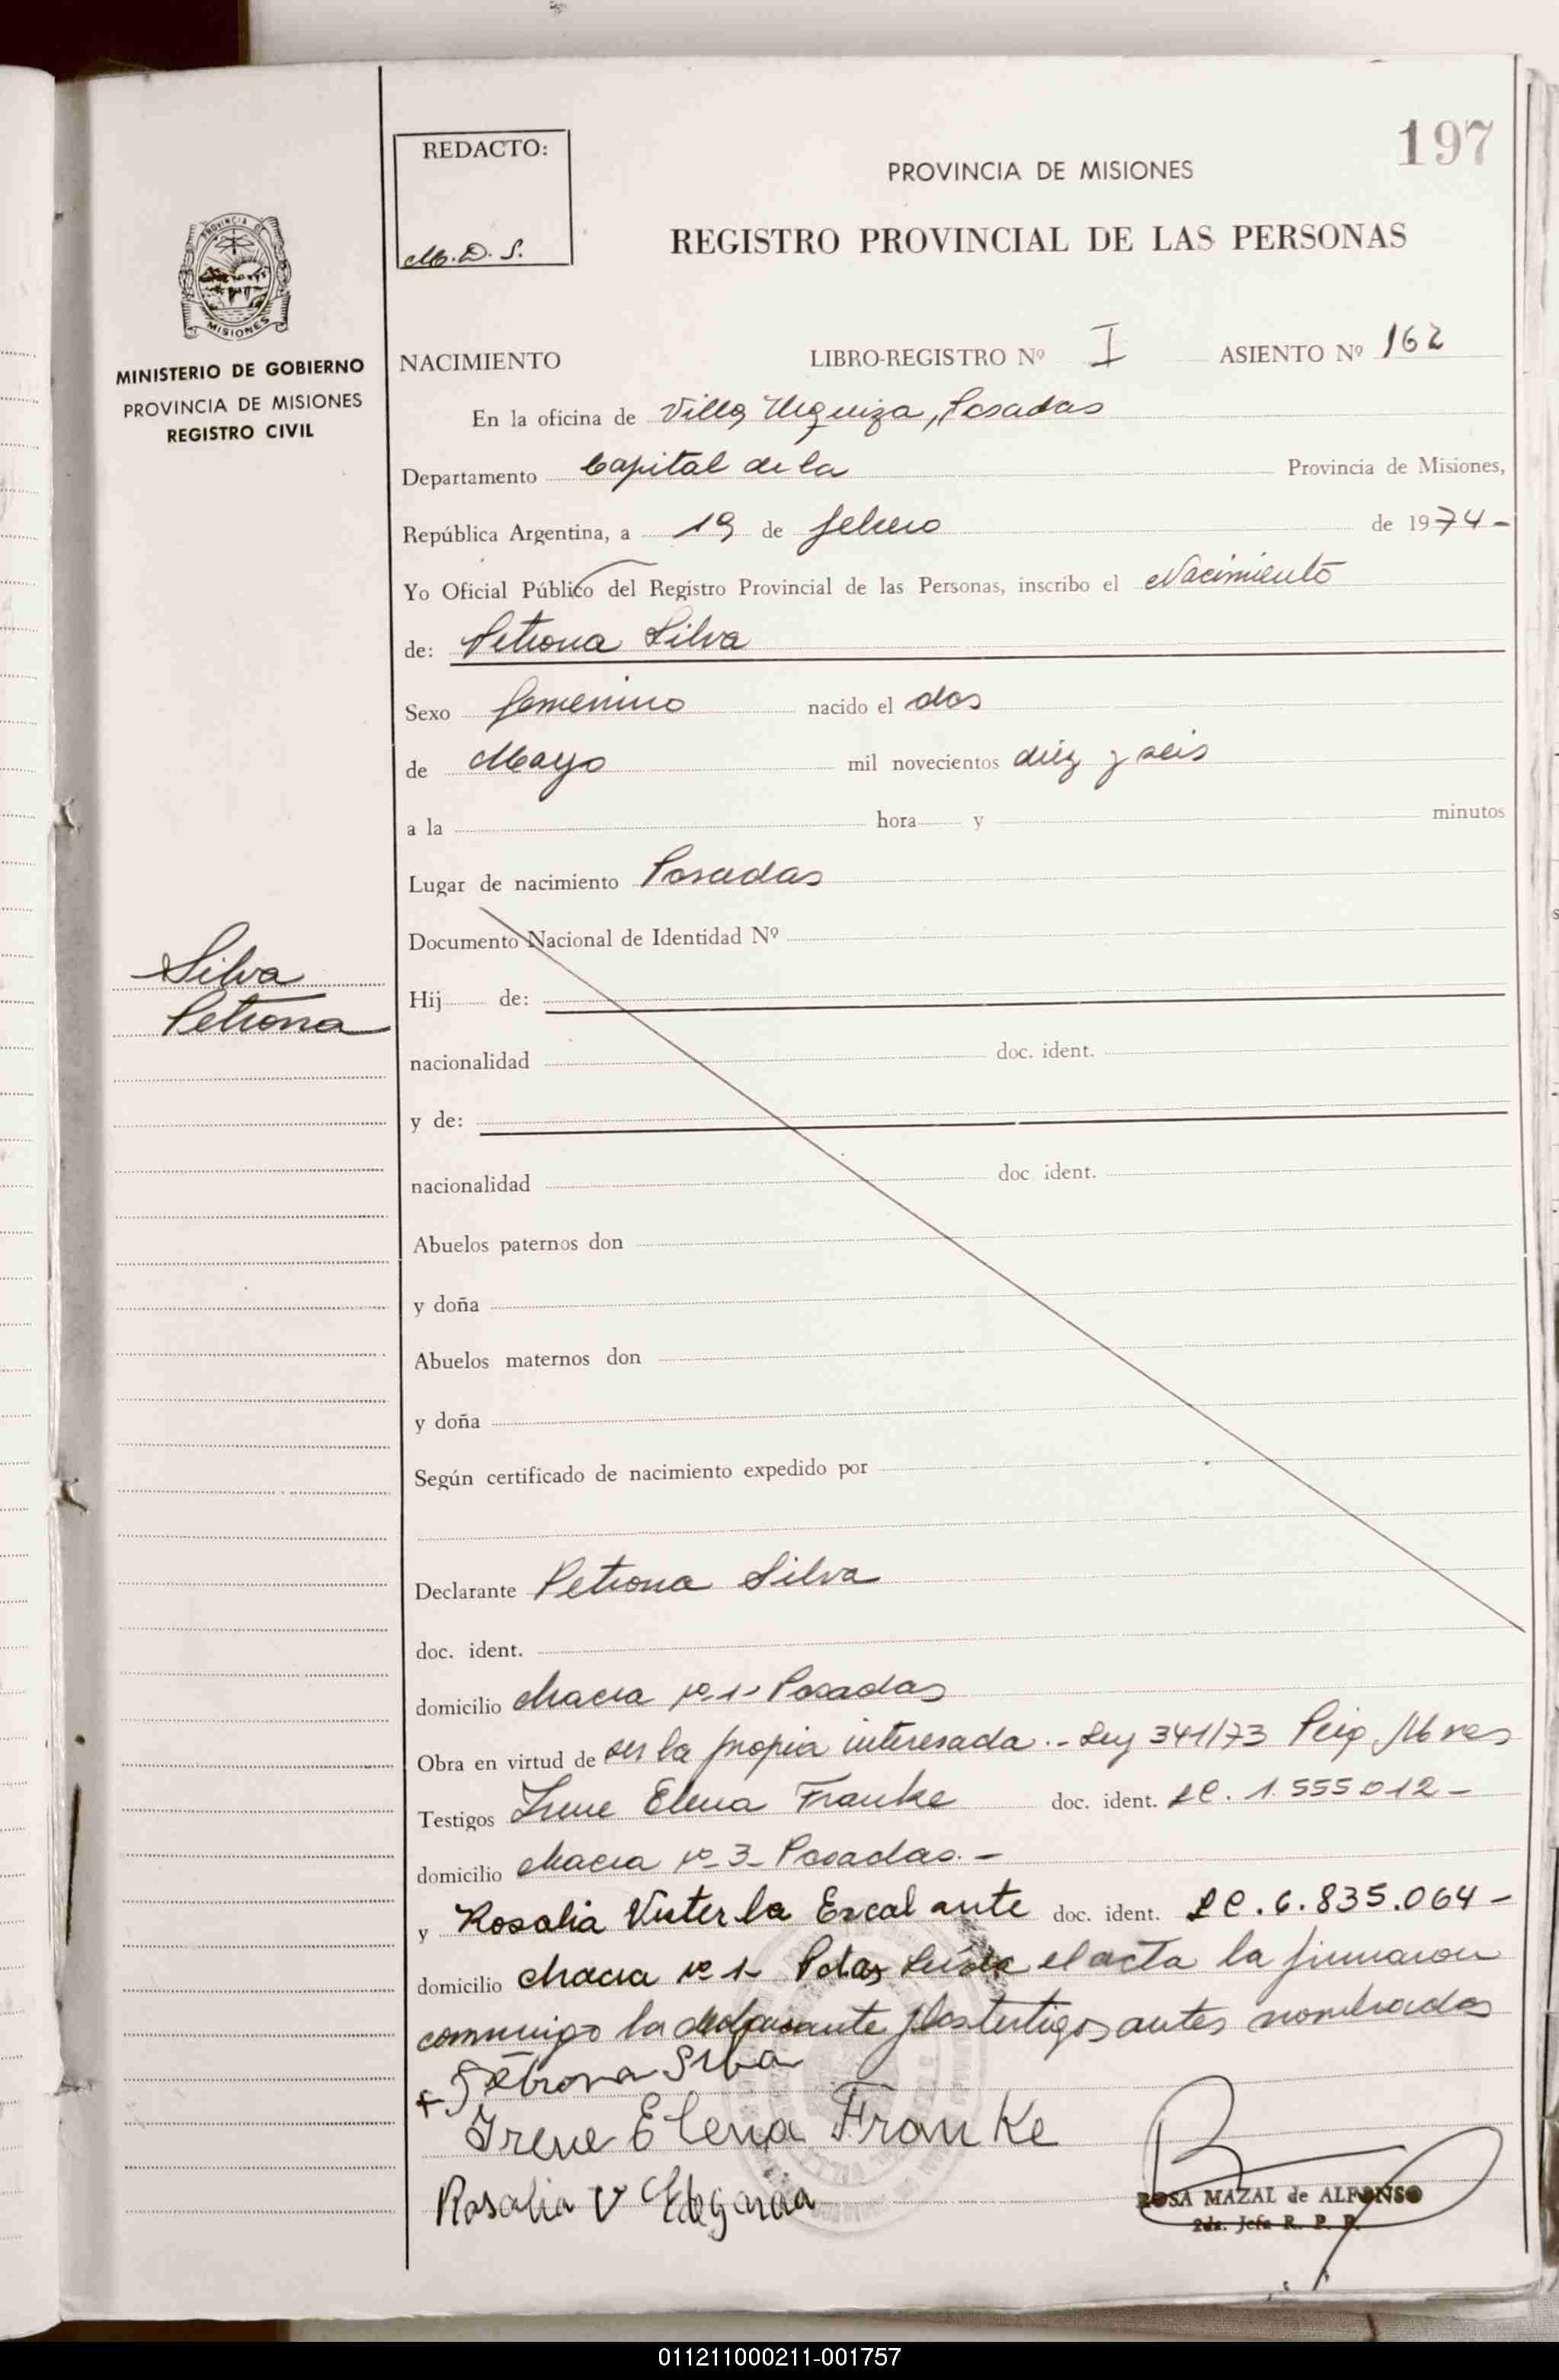 197
REDACTO:
M.D.S.
PROVINCIA DE MISIONES
REGISTRO PROVINCIAL DE LAS PERSONAS
PROVINCIA DE
MISIONES
MINISTERIO DE GOBIERNO
PROVINCIA DE MISIONES
REGISTRO CIVIL
NACIMIENTO LIBRO-REGISTRO Nº I ASIENTO Nº 162
En la oficina de Villa Urquiza, Posadas
Departamento Capital de la Provincia de Misiones,
República Argentina, a 19 de febrero de 1974-
Yo Oficial Público del Registro Provincial de las Personas, inscribo el Nacimiento
de: Petrona Silva
Sexo femenino nacido el dos
de Mayo mil novecientos diez y seis
a la hora y minutos
Lugar de nacimiento Posadas
Documento Nacional de Identidad Nº
Silva
Petrona
Hij de:
nacionalidad doc. ident.
y de:
nacionalidad doc ident.
Abuelos paternos don
y doña
Abuelos maternos don
y doña
Según certificado de nacimiento expedido por
Declarante Petrona Silva
doc. ident.
domicilio chacra nº 1- Posadas
Obra en virtud de ser la propia interesada.- Ley 341/73
Testigos Irene Elena Franke doc. ident. LC. 1.555012-
domicilio chacra nº 3- Posadas.-
y Rosalia Escalante doc. ident. LC. 6.835.064-
domicilio chacra nº 1- Pdas Leída el acta la firmaron
conmigo la declarante y los testigos antes nombrados
+ Petrona Silva
Irene Elena Franke
Rosalia V
ROSA MAZAL de ALFONSO
2da. Jefa R. P. P.
011211000211-001757